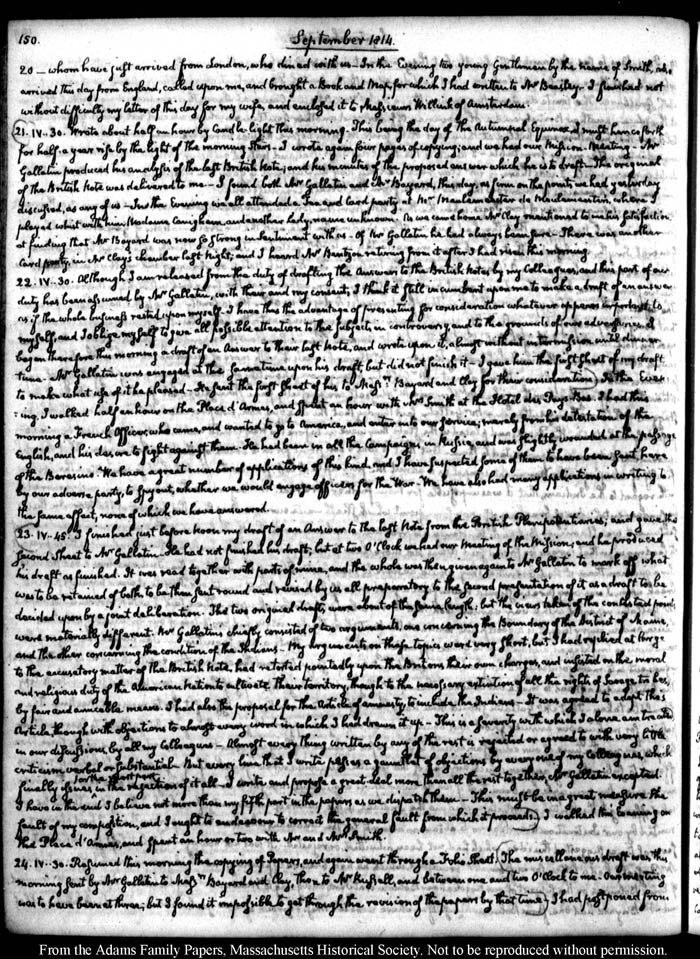 150.
September 1814.
20 — whom have just arrived from London, who dined with us — In the Evening two young Gentlemen by the name of Smith, who
arrived this day from England, called upon me, and brought a Book and Map, for which I had written to Mr Beasley. I finished not
without difficulty my letter of this day for my wife, and enclosed it to Messieurs Willink of Amsterdam.
21. IV-30. Wrote about half an hour by Candle light this morning. This being the day of the Autumnal Equinox I must henceforth
for half a year rise by the light of the morning Stars. I wrote again four pages of copying; and we had our Mission-Meeting — Mr
Gallatin produced his analysis of the last British Note; and his minutes of the proposed answer which he is to draft. The original
of the British Note was delivered to me — I found both Mr Gallatin and Mr Bayard, this day, as firm on the points we had yesterday
discussed, as any of us — In the Evening we all attended a Tea and Card party at Mrs Meulemeester de Meulemeester, where I
played whist with him, Madame Canigham, and another lady, name unknown. As we came home Mr Clay mentioned to me his satisfaction
at finding that Mr Bayard was now so strong in Sentiment with us — Of Mr Gallatin he had always been sure — There was another
Card party, in Mr Clay's chamber last Night; and I heard Mr Bentzon retiring from it after I had risen this morning.
22. IV-30. Although I am released from the duty of drafting the Answer to the British Notes by my Colleagues, and this part of our
duty has been assumed by Mr Gallatin, with their and my consent, I think it still incumbent upon me to make a draft of an answer
as if the whole business rested upon myself. I have thus the advantage of presenting for consideration whatever appears important to
myself, and I oblige myself to give all possible attention to the subjects in controversy, and to the grounds of our adversaries. I
began therefore this morning a draft of an Answer to their last Note, and wrote upon it, almost without intermission until dinner
time — Mr Gallatin was engaged at the same time upon his draft, but did not finish it — I gave him the first sheet of my draft
to make what use of it he pleased — He sent the first sheet of his to Messrs Bayard and Clay for their consideration) In the Even-
-ing, I walked half an hour on the Place d'Armes, and spent an hour with Mrs Smith at the Hotel des Pays-Bas. I had this
morning a French Officer, who came, and wanted to go to America, and enter into our service; merely from his detestation of the
English, and his desire to fight against them. He had been in all the Campaigns in Russia, and was slightly wounded at the passage
of the Beresina. We have a great number of applications of this kind, and I have suspected some of them to have been sent here
by our adverse party, to spy out, whether we would engage officers for the War — We have also had many applications in writing to
the same effect, none of which we have answered.
23. IV-45. I finished just before Noon my draft of an Answer to the last Note from the British Plenipotentiaries; and gave the
second Sheet to Mr Gallatin — He had not finished his draft; but at two O'Clock we had our Meeting of the Mission, and he produced
his draft as finished. It was read together with parts of mine, and the whole was then given again to Mr Gallatin to mark off what
was to be retained of both, to be then sent round and revised by us all preparatory to the second presentation of it as a draft to be
decided upon by a joint deliberation. The two original drafts, were about of the same length; but the views taken of the contested points
were materially different. Mr Gallatin's chiefly consisted of two arguments, one concerning the Boundary of the District of Maine,
and the other concerning the condition of the Indians — My arguments on these topics were very short, but I had replied at large
to the accusatory matter of the British Note, had retorted pointedly upon the Britons their own charges, and insisted on the moral
and religious duty of the American Nation to cultivate their territory, though to the necessary extinction of all the rights of Savage tribes,
by fair and amicable means. I had also the proposal for the Article of amnesty to include the Indians — It was agreed to adopt this
Article, though with objections to almost every word in which I had drawn it up — This is a severity with which I alone am treated
in our discussions, by all my Colleagues — Almost every thing written by any of the rest is rejected or agreed to with very little
criticism verbal or substantial. But every line that I write passes a gauntlet of objections by every one of my Colleagues, which
finally issues in the rejection of it all — I write and propose a great deal more than all the rest together, Mr Gallatin excepted
or the most part
I have in the end I believe not more than my fifth part in the papers as we dispatch them — This must be in a great measure the
fault of my composition, and I ought to endeavour to correct the general fault from which it proceeds.) I walked this evening on
the Place d'Armes, and spent an hour or two with Mr and Mrs Smith.
24. IV-30. Resumed this morning the copying of Papers, and again went through a Folio Sheet. (The miscellaneous draft was this
morning sent by Mr Gallatin to Messrs Bayard and Clay, then to Mr Russell, and between one and two O'Clock to me. Our meeting
was to have been at three; but I found it impossible to get through the revision of the papers by that time;) I had postponed from
From the Adams Family Papers, Massachusetts Historical Society. Not to be reproduced without permission.